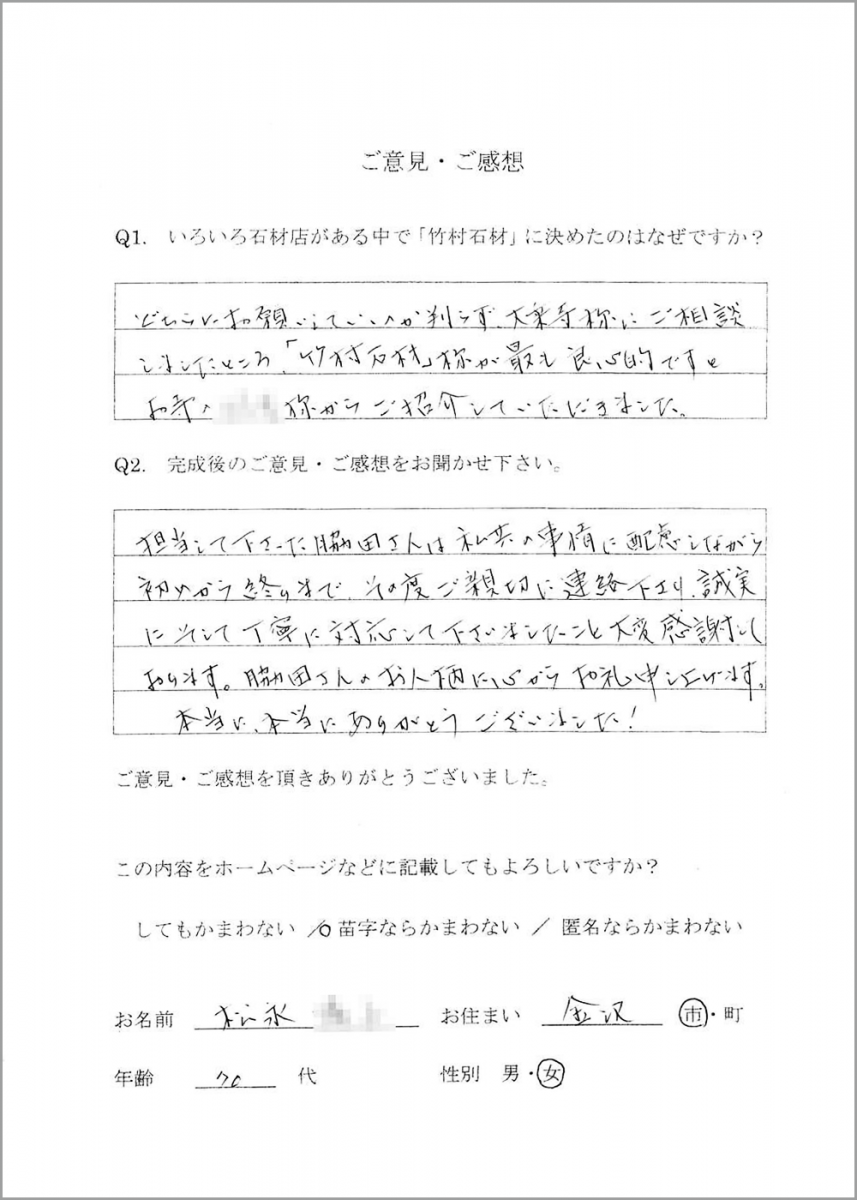 ご意見・ご感想
Q1. いろいろ石材店がある中で「竹村石材」に決めたのはなぜですか？
どちらにお願いしていいか判らず、大乗寺様にご相談
しましたところ、「竹村石材」様が最も良心的ですと
お寺の 様からご紹介していただきました。
Q2. 完成後のご意見・ご感想をお聞かせ下さい。
担当して下さった脇田さんは私共の事情に配慮しながら
初めから終りまで、その度ご親切に連絡下さり、誠実
にそして丁寧に対応して下さいましたこと大変感謝して
おります。脇田さんのお人柄に心からお礼申し上げます。
本当に、本当にありがとうございました！
ご意見・ご感想を頂きありがとうございました。
この内容をホームページなどに記載してもよろしいですか？
してもかまわない ／ 苗字ならかまわない ／ 匿名ならかまわない
お名前 松永 お住まい 金沢 市・町
年齢 70 代 性別 男・女